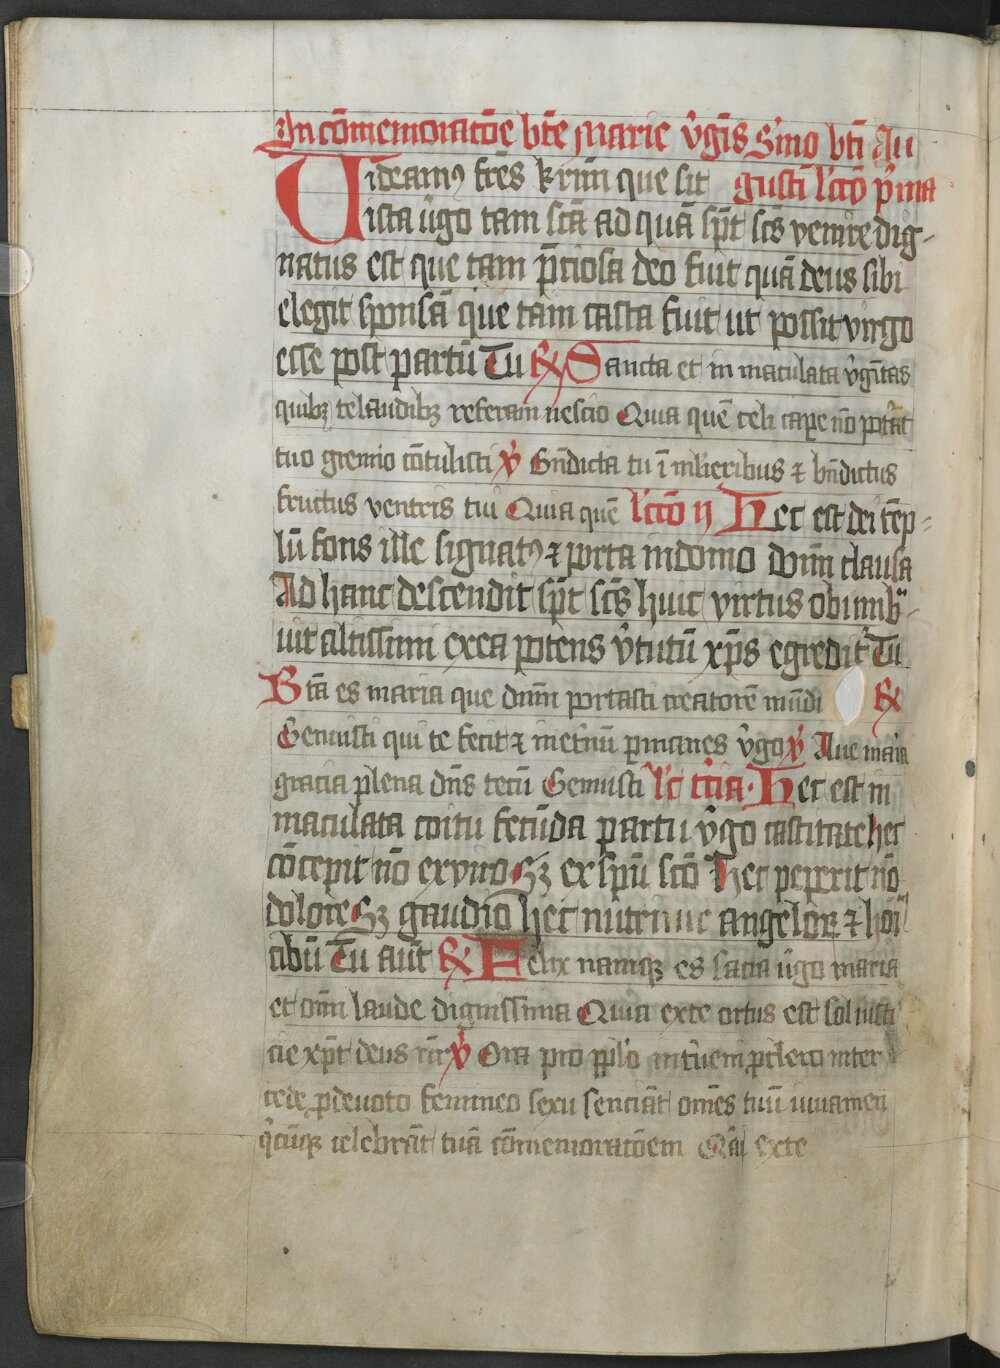 In cōmemoratōe btē Marie v̓gīs S'mo btī Au
Uideamꝯ frēs krīm que sit gustī l'ctō p̓ma
ista ūgo tam sctā ad quā sp̄t sc̄s venire dig-
natus est que tam p̄ciosa deo fuit quā deus sibi
elegit sponsā que tam casta fuit ut possit virgo
esse post partū Tu ℟ Sancta et in maculata v̓gītas
quibꝫ te laudibꝫ referam nescio Quia quē celi cape nō pot̓āt
tuo gremio cōtulisti ℣ Bn̄dicta tu ī ml̓ieribus ⁊ bn̄dictus
fructus ventris tui Quia quē l'ctō ij Hec est dei tēp-
lū fons ille signatꝯ ⁊ porta in domo domī clausa
Ad hanc descendit sp̄t sc̄s huic virtus obumb-
uit altissimi ex ea potens v̓tutū xp̄s egredit̓ Tu
Btā es maria que dn̄m portasti creatorē mūdi ℟
Genuisti qui te fecit ⁊ inet̓nū ꝑmanes v̓go ℣ Aue ma̓ia
gracia plena dn̄s tecū Genuisti l'c tc̄ia. Hec est in
maculata coitu fecūda partu v̓go castitate hec
cōcepit nō ex viro Sꝫ ex sp̄u sctō Hec peperit nō
dolore Sꝫ gaudio hec nutriuit angeloꝝ ⁊ hoī
cibū Tū aut̄ ℟ Felix namqꝫ es sacra ūgo maria
et omī laude dignissima Quia ex te ortus est sol iusti
cie xp̄t deus nr̄ ℣ Ora pro ppl'o int̓ueni ꝓ clero inter
cede ꝓ deuoto femineo sexu senciāt omēs tuū iuuamen
q̓cūqꝫ celebrāt tuā cōmemoratōem Q̓a ex te